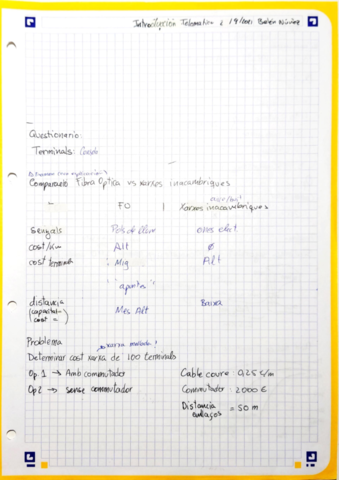 Introducción Telematica
Questionario:
Terminals:
Comparació Fibra Optica vs xarxes inalambriques
FO | Xarxes inalambriques
Senyals Pols de llum ones elect.
cost/km Alt Ø
cost terminals Mig Alt
"apuntes"
distancia Baixa
(capacitat-cost =) Mes Alt
Problema xarxa mallada!
Determinar cost xarxa de 100 terminals
Op. 1 → Amb commutador Cable coure: 0,25 €/m
Op 2 → sense commutador Commutador: 2000 €
Distancia enllaços = 50 m